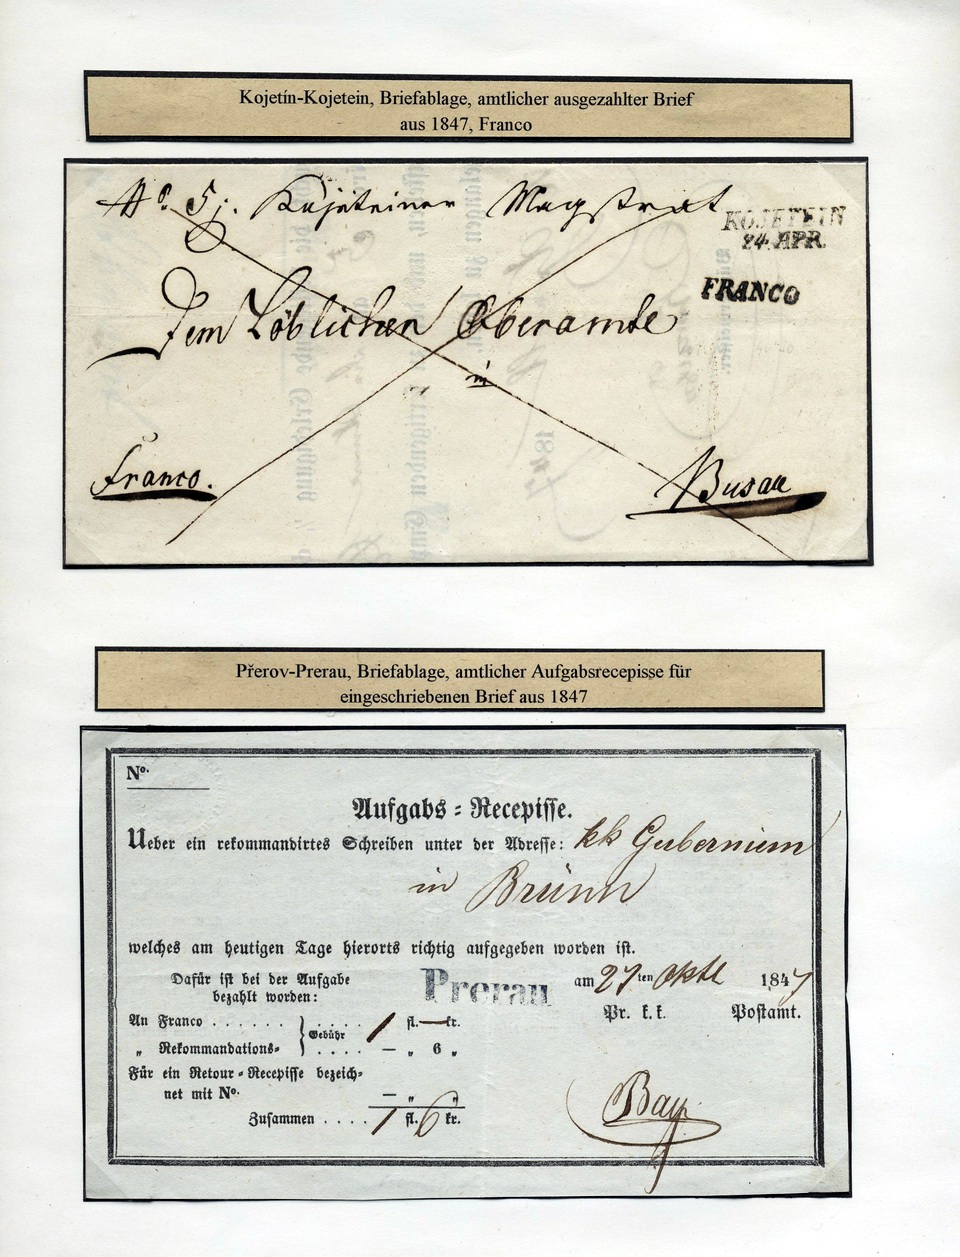 Kojetín-Kojetein, Briefablage, amtlicher ausgezahlter Brief
aus 1847, Franco
No. 5j. Kojeteiner Magstrat
KOJETEIN
24. APR.
FRANCO
Dem Löblichen Oberamte
in
Franco.
Busau
Přerov-Prerau, Briefablage, amtlicher Aufgabsrecepisse für
eingeschriebenen Brief aus 1847
No.
Aufgabs = Recepisse.
Ueber ein rekommandirtes Schreiben unter der Adresse: kk Gubernium
in Brünn
welches am heutigen Tage hierorts richtig aufgegeben worden ist.
Dafür ist bei der Aufgabe
bezahlt worden:
Prerau
am 27ten Okt 1847
Pr. k. k. Postamt.
An Franco . . . . . . Gebühr . . . . 1 fl. — kr.
„ Rekommandations= . . . . — „ 6 „
Für ein Retour = Recepisse bezeich=
net mit No. — „ „
Zusammen . . . . 1 fl. 6 kr.